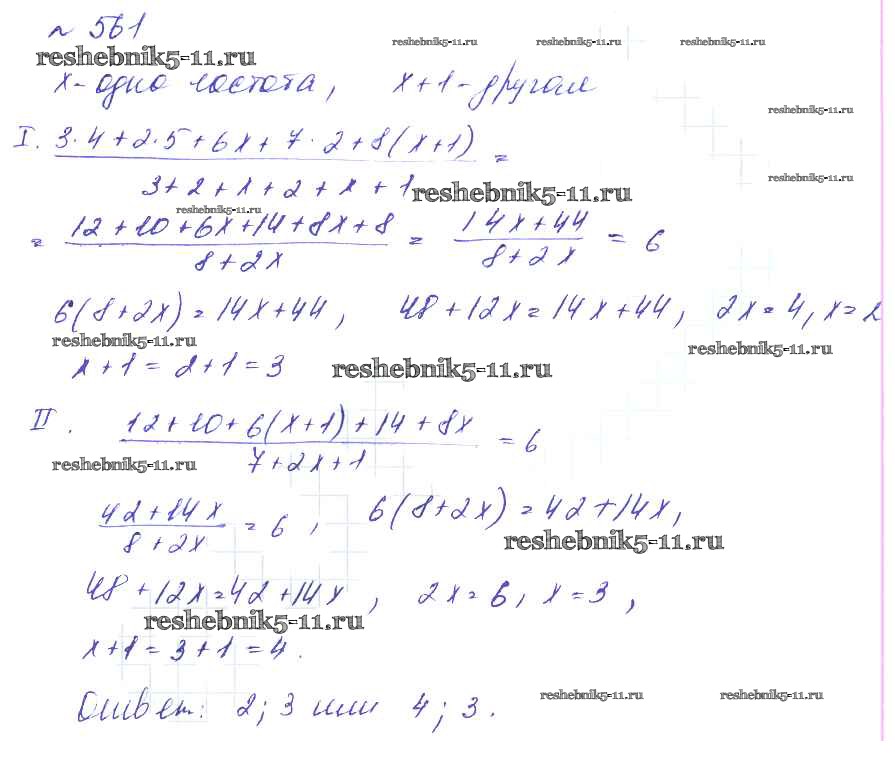 № 561
reshebnik5-11.ru reshebnik5-11.ru reshebnik5-11.ru reshebnik5-11.ru
x - одна частота, x+1 - другая
reshebnik5-11.ru
I. 3·4+2·5+6x+7·2+8(x+1) =
3+2+x+2+x+1
reshebnik5-11.ru
reshebnik5-11.ru
reshebnik5-11.ru
= 12+10+6x+14+8x+8 = 14x+44 = 6
8+2x 8+2x
6(8+2x)=14x+44, 48+12x=14x+44, 2x=4, x=2
reshebnik5-11.ru reshebnik5-11.ru
x+1=2+1=3
reshebnik5-11.ru
II. 12+10+6(x+1)+14+8x = 6
7+2x+1
reshebnik5-11.ru
42+14x = 6, 6(8+2x)=42+14x,
8+2x
reshebnik5-11.ru
48+12x=42+14x, 2x=6, x=3,
reshebnik5-11.ru
x+1=3+1=4.
Ответ: 2; 3 или 4; 3.
reshebnik5-11.ru reshebnik5-11.ru